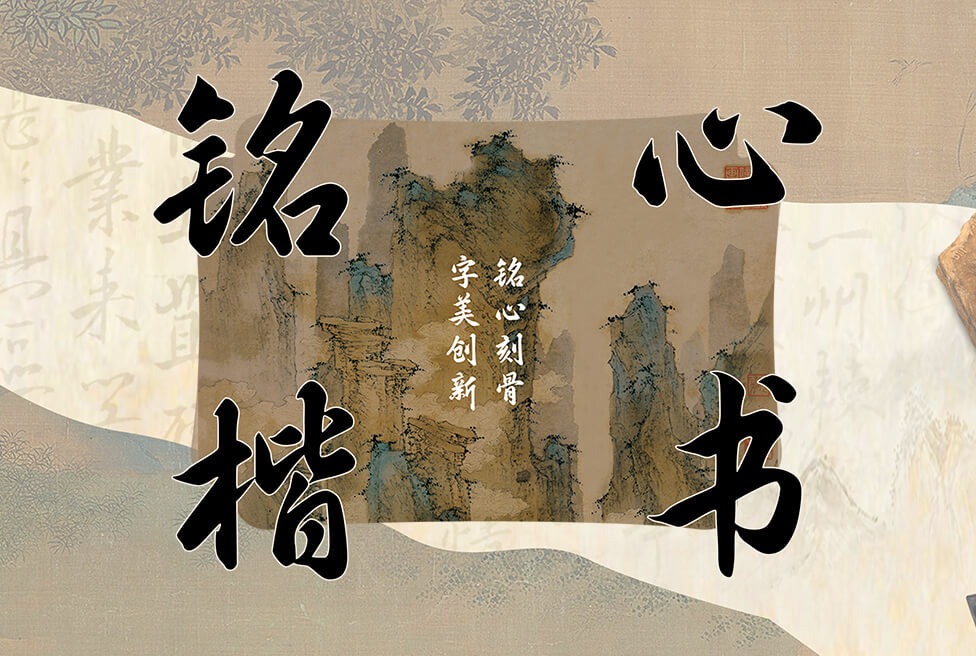 铭心
楷书
铭心刻骨
字美创新